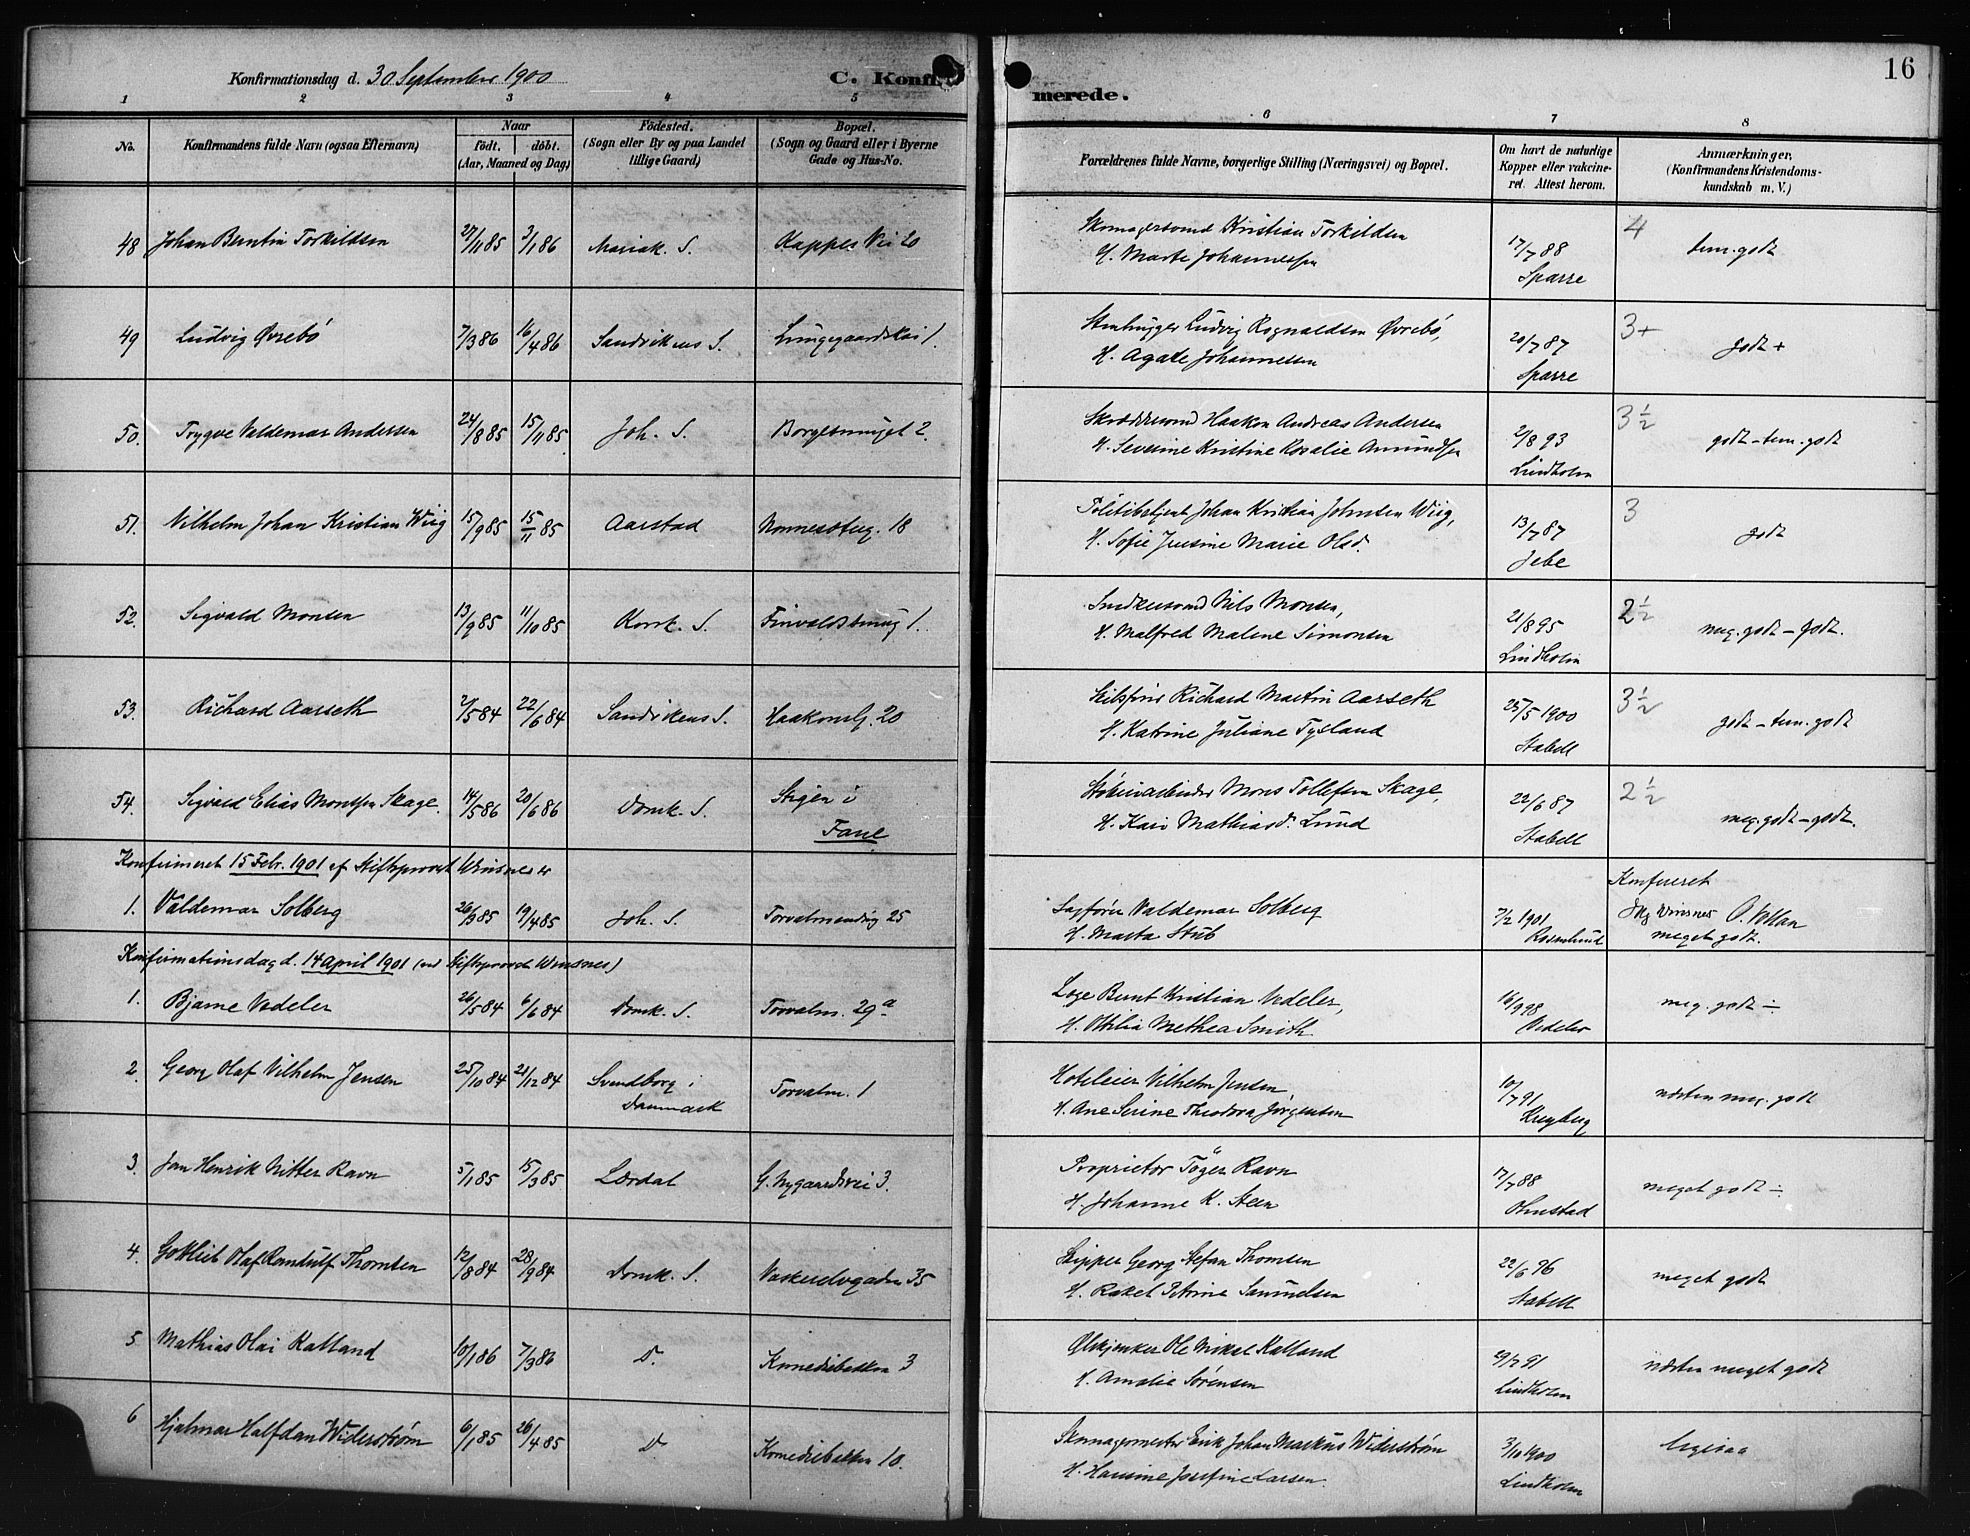 16
Konfirmationsdag d. 30 September 1900
C. Konfirmerede.
1 2 3 4 5 6 7 8
No.
Konfirmandens fulde Navn (ogsaa Efternavn)
Naar
födt. döbt.
(Aar, Maaned og Dag)
Födested.
(Sogn eller By og paa Landet
tillige Gaard)
Bopæl.
(Sogn og Gaard eller i Byerne
Gade og Hus-No.
Forældrenes fulde Navne, borgerlige Stilling (Næringsvei) og Bopæl.
Om havt de naturlige
Kopper eller vakcine-
ret. Attest herom.
Anmærkninger,
(Konfirmandens Kristendoms-
kundskab m. V.)
48 Johan Berntin Torkildsen 27/11 85 3/1 86 Mariak. S. Kappes Vei 20
Skomagersvend Kristian Torkildsen
H. Marte Johannessen
17/7 88
Sparre
4
tem. godt
49 Ludvig Øvrebö 7/3 86 16/4 86 Sandvikens S. Lungegaardskai 1.
Stenhugger Ludvig Rognaldsen Øvrebö,
H. Agate Johannesen
20/7 87
Sparre
3+
godt +
50. Trygve Valdemar Andersen 24/8 85 15/11 85 Joh. S. 2.
Skræddersvend Haakon Andreas Andersen
H. Severine Kristine Rosalie Amundsen
2/8 93
Lindholm
3 1/2
godt - tem. godt
51. Vilhelm Johan Kristian Wiig 15/9 85 15/11 85 Aarstad Nonnesetereg. 18
Politibetjent Johan Kristian Johnsen Wiig,
H. Sofie Jensine Marie Olsd.
13/7 87
Jebe
3
godt
52. Sigvald Monsen 13/9 85 11/10 85 Korsk. S. 1.
Snedkersvend Nils Monsen,
H. Malfred Malene Simonsen
21/8 95
Lindholm
2 1/2
meg. godt - godt.
53. Richard Aarseth 2/5 84 22/6 84 Sandvikens S. Haakonsg. 20
Skibsförer Richard Martin Aarseth
H. Katrine Juliane Tysland
25/5 1900
Stabell
3 1/2
godt - tem. godt
54. Sigvald Elias Monsen Skage. 14/5 86 20/6 86 Domk. S. Stigen i
Fane
Mons Tollefsen Skage,
H. Kari Mathiasd. Lund
22/6 87
Stabell
2 1/2
meg. godt - godt.
Konfirmeret 15 Febr. 1901 af Stiftsprovst Winsnes
1. Valdemar Solberg 26/3 85 19/4 85 Joh. S. Torvalmending 25
Sagförer Valdemar Solberg
H. Marta Stub
7/2 1901
Rosenlund
Konfereret
Winsnes O. Vollan
meget godt.
Konfirmationsdag d. 14 April 1901 (ved Stiftsprovst Winsnes)
1. Bjarne Vedeler 26/5 84 6/6 84 Domk. S. Torvalm. 29 a
Læge Bernt Kristian Vedeler,
H. Ottilia Methea Smith
16/9 98
Vedeler
meg. godt ÷
2. Georg Olaf Vilhelm Jensen 25/10 84 21/12 84 Svendborg i
Danmark
Torvalm. 1
Hoteleier Vilhelm Jensen
H. Ane Serine Theodora Jörgensen
10/7 91
Krugberg
næsten meg. godt
3. Jan Henrik Nitter Ravn 5/1 85 15/3 85 Lærdal G. Nygaardsvei 3.
Proprietær Töger Ravn
H. Johanne K. Steen
17/7 88
Olmstad
meget godt ÷
4. Gottlieb Olaf Randulf Thomsen 12/8 84 28/9 84 Domk. S. Vaskerelvgaden 35
Skipper Georg Stefan Thomsen
H. Rakel Petrine Samuelsen
22/6 96
Stabell
meget godt
5 Mathias Olai Kalland 10/1 86 7/3 86 D. Komediebakken 3
Ølskjenker Ole Mikal Kalland
H. Amalie Sørensen
29/7 91
Lindholm
næsten meget godt
6 Hjalmar Halfdan Widerstrøm 6/1 85 26/4 85 D Komediebakken 10.
Skomagermester Erik Johan Markus Widerstrøm
H. Hansine Josefine Larsen
3/10 1900
Lindholm
ligesaa